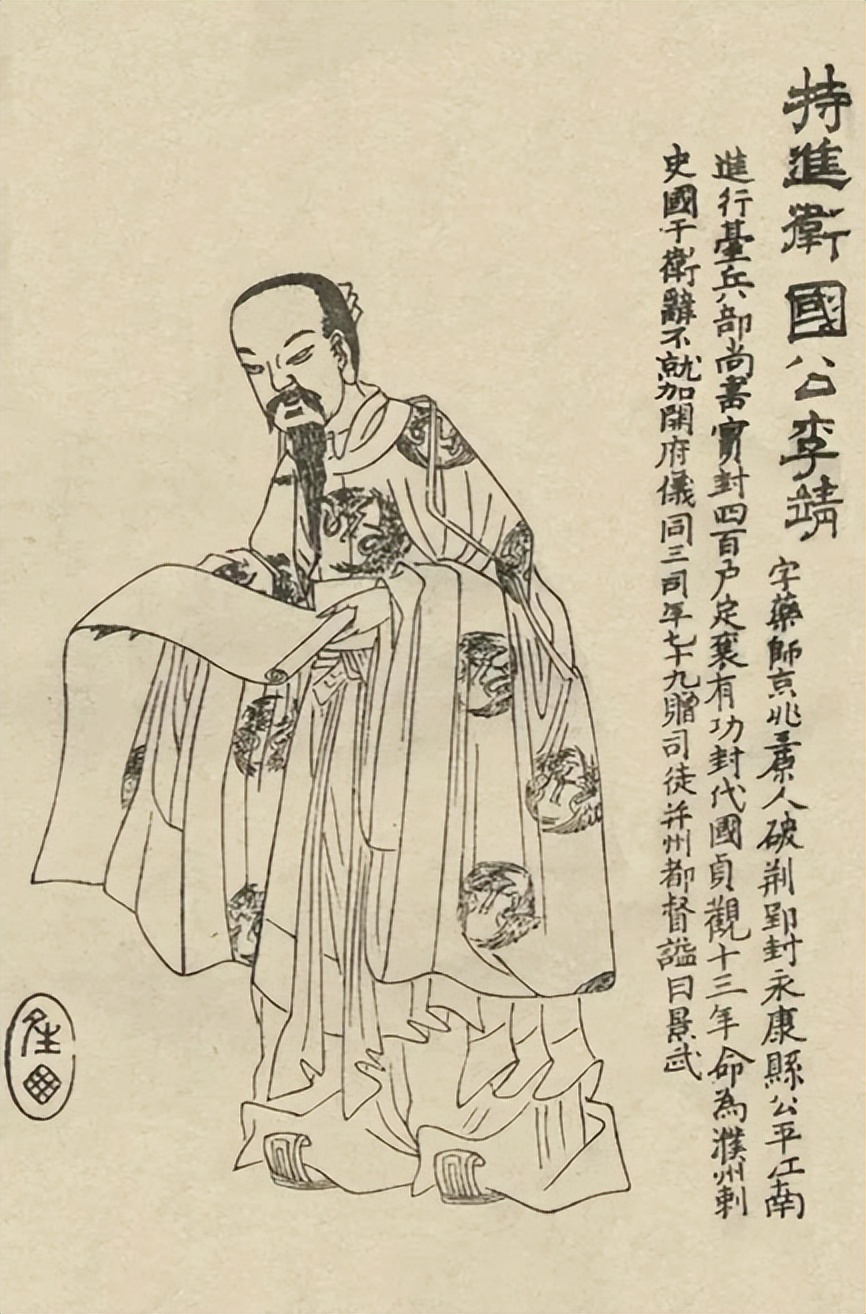 特進衛國公李靖
字藥師京兆三原人破荆郢封永康縣公平江南
進行臺兵部尚書實封四百户定襄有功封代國貞觀十三年命為濮州刺
史國于衛辭不就加開府儀同三司年七十九贈司徒并州都督謚曰景武